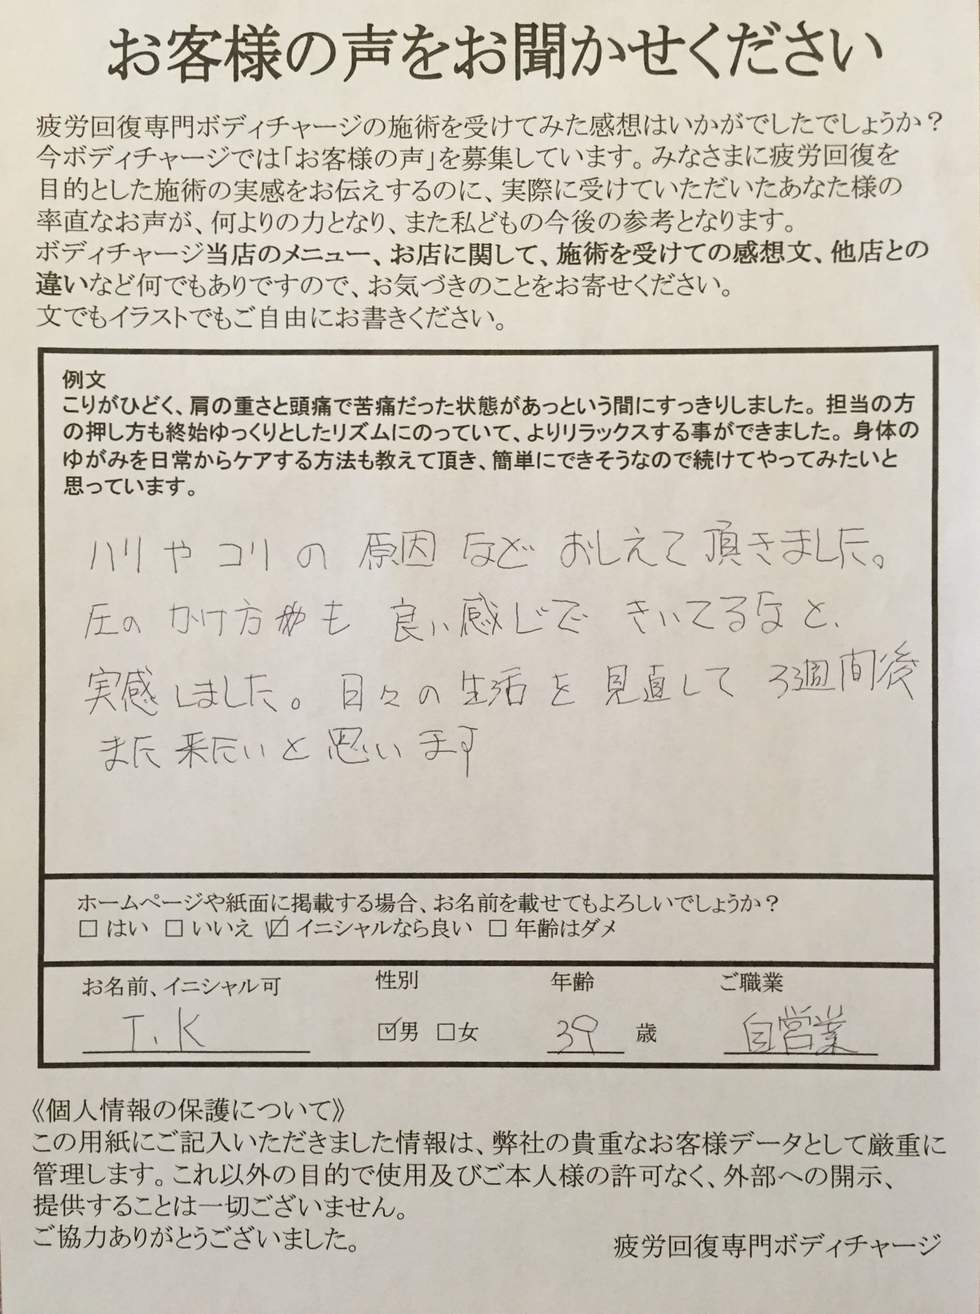 お客様の声をお聞かせください
疲労回復専門ボディチャージの施術を受けてみた感想はいかがでしたでしょうか？
今ボディチャージでは「お客様の声」を募集しています。みなさまに疲労回復を
目的とした施術の実感をお伝えするのに、実際に受けていただいたあなた様の
率直なお声が、何よりの力となり、また私どもの今後の参考となります。
ボディチャージ当店のメニュー、お店に関して、施術を受けての感想文、他店との
違いなど何でもありですので、お気づきのことをお寄せください。
文でもイラストでもご自由にお書きください。
例文
こりがひどく、肩の重さと頭痛で苦痛だった状態があっという間にすっきりしました。担当の方
の押し方も終始ゆっくりとしたリズムにのっていて、よりリラックスする事ができました。身体の
ゆがみを日常からケアする方法も教えて頂き、簡単にできそうなので続けてやってみたいと
思っています。
ハリやコリの原因などおしえて頂きました。
圧のかけ方も良い感じできいてるなと、
実感しました。日々の生活を見直して3週間後
また来たいと思います
ホームページや紙面に掲載する場合、お名前を載せてもよろしいでしょうか？
□ はい □ いいえ ☑ イニシャルなら良い □ 年齢はダメ
お名前、イニシャル可 性別 年齢 ご職業
T.K ☑男 □女 39 歳 自営業
《個人情報の保護について》
この用紙にご記入いただきました情報は、弊社の貴重なお客様データとして厳重に
管理します。これ以外の目的で使用及びご本人様の許可なく、外部への開示、
提供することは一切ございません。
ご協力ありがとうございました。
疲労回復専門ボディチャージ